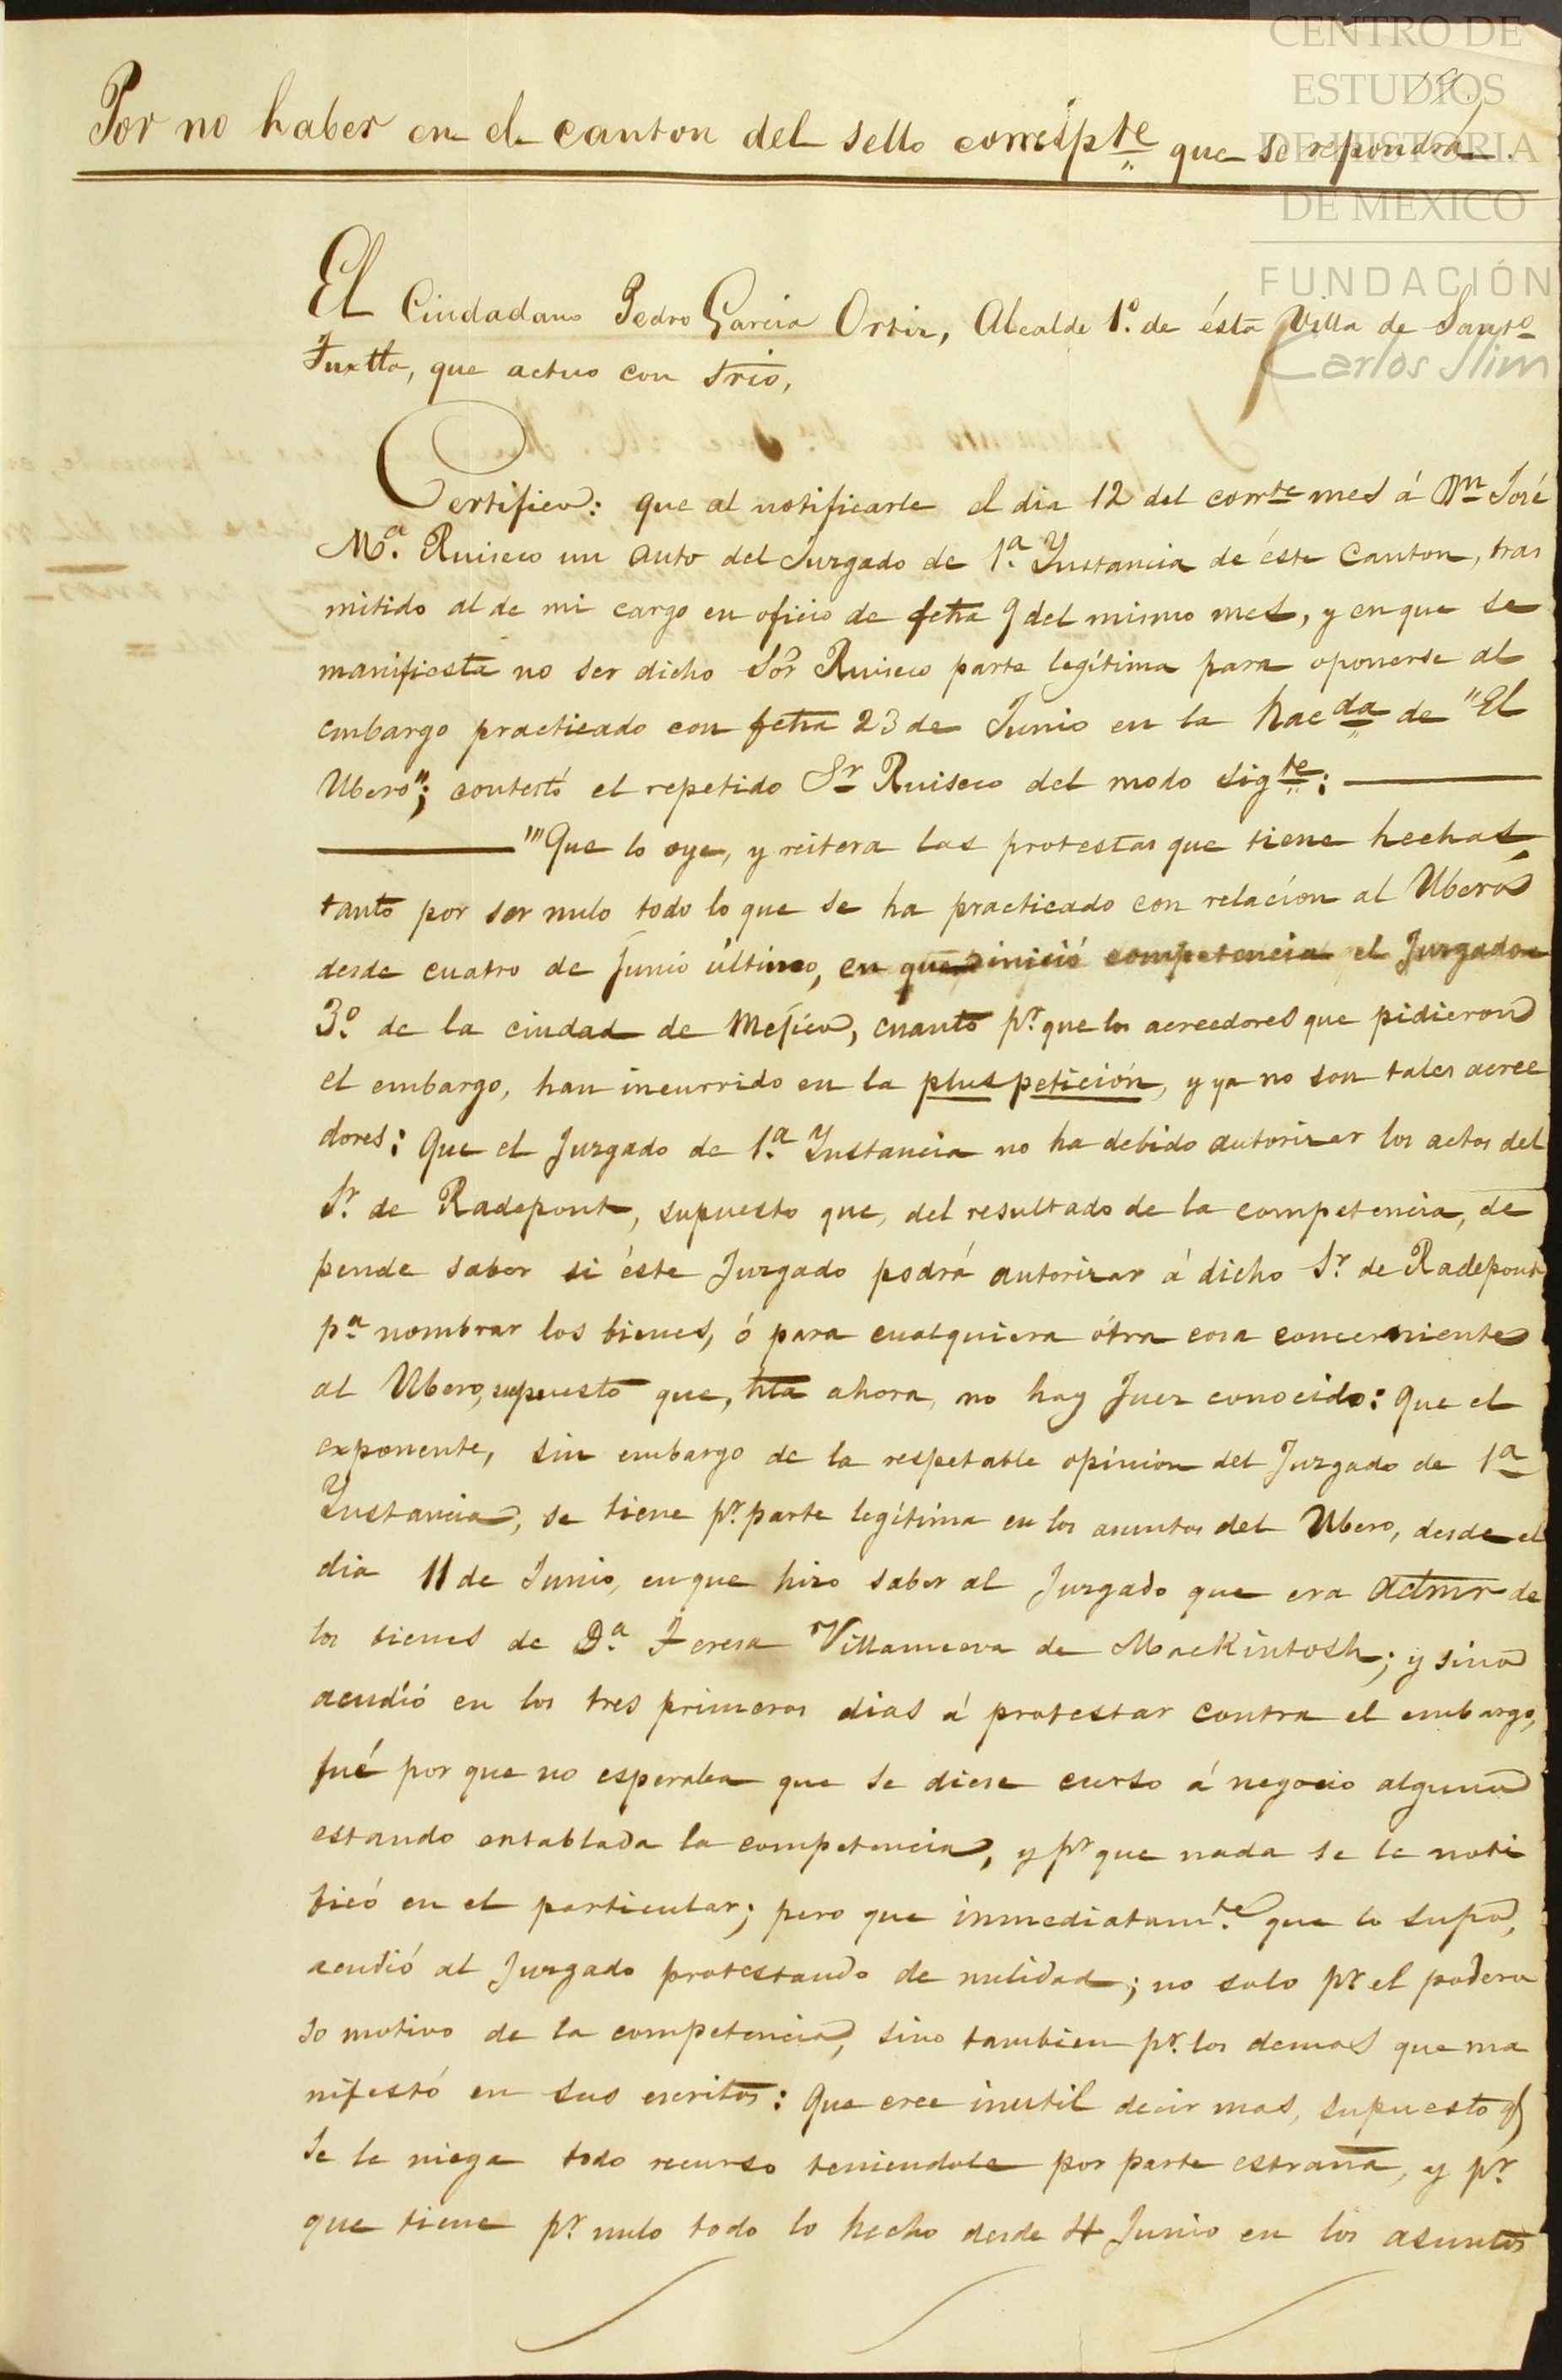 CENTRO DE
ESTUDIOS
DE HISTORIA
DE MEXICO
FUNDACIÓN
Carlos Slim
Por no haber en el canton del sello correspte que se repondrá.
El Ciudadano Pedro Garcia Ortiz, Alcalde 1º. de ésta Villa de Santo
Tuxtla, que actuo con Srio,
Certifico: que al notificarle el dia 12 del corrte mes á Dn José
Mª. Ruiseco un auto del Juzgado de 1ª. Ynstancia de éste Canton, tras
mitido al de mi cargo en oficio de fcha 9 del mismo mes, y en que se
manifiesta no ser dicho Sor Ruiseco parte legítima para oponerse al
embargo practicado con fcha 23 de Junio en la hacda de "El
Ubero"; contestó el repetido Sr Ruiseco del modo sigte:
"'Que lo oye, y reitera las protestas que tiene hechas
tanto por ser nulo todo lo que se ha practicado con relacion al Ubero
desde cuatro de Junio último, en que inició competencia el Juzgado
3º. de la ciudad de Mejico, cuanto pr. que los acreedores que pidieron
el embargo, han incurrido en la plus petición, y ya no son tales acree
dores: Que el Juzgado de 1ª. Ynstancia no ha debido autorizar los actos del
Sr. de Radepont, supuesto que, del resultado de la competencia, de
pende saber si éste Juzgado podrá autorizar á dicho Sr. de Radepont
pª nombrar los bienes, ó para cualquiera ótra cosa concerniente
al Ubero, supuesto que, hta ahora, no hay Juez conocido: Que el
exponente, sin embargo de la respetable opinion del Juzgado de 1ª
Ynstancia, se tiene pr. parte legítima en los asuntos del Ubero, desde el
dia 11 de Junio, en que hizo saber al Juzgado que era Admr de
los bienes de Dª. Teresa Villanueva de MacKintosh; y sino
acudió en los tres primeros dias á protestar contra el embargo,
fué por que no esperaba que se diese curso á negocio alguno
estando entablada la competencia, y pr que nada se le noti
ficó en el particular; pero que inmediatamte. que lo supo,
acudió al Juzgado protestando de nulidad; no solo pr el podero
so motivo de la competencia, sino tambien pr. los demas que ma
nifestó en sus escritos: Que cree inutil decir mas, supuesto q
se le niega todo recurso teniendole por parte estraña, y pr.
que tiene pr. nulo todo lo hecho desde 4 Junio en los asuntos